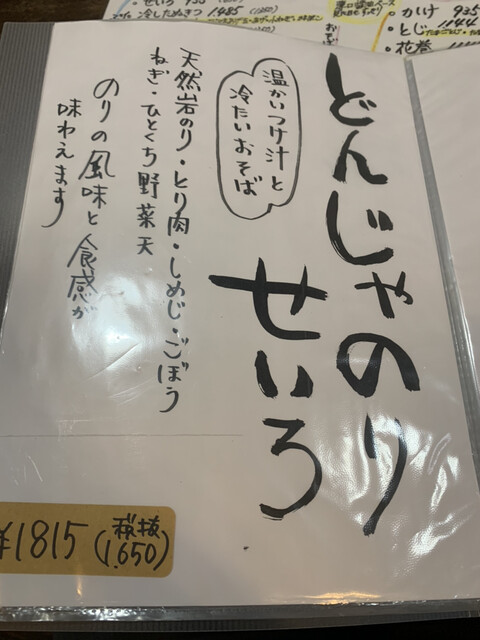 どんじゃのり
せいろ
温かいつけ汁と
冷たいおそば
天然岩のり・とり肉・しめじ・ごぼう
ねぎ・ひとくち野菜天
のりの風味と食感が
味わえます
¥1815(税抜1,650)
せいろ
冷したぬきつ 1485
・かけ 935
・とじ 1144
・花巻